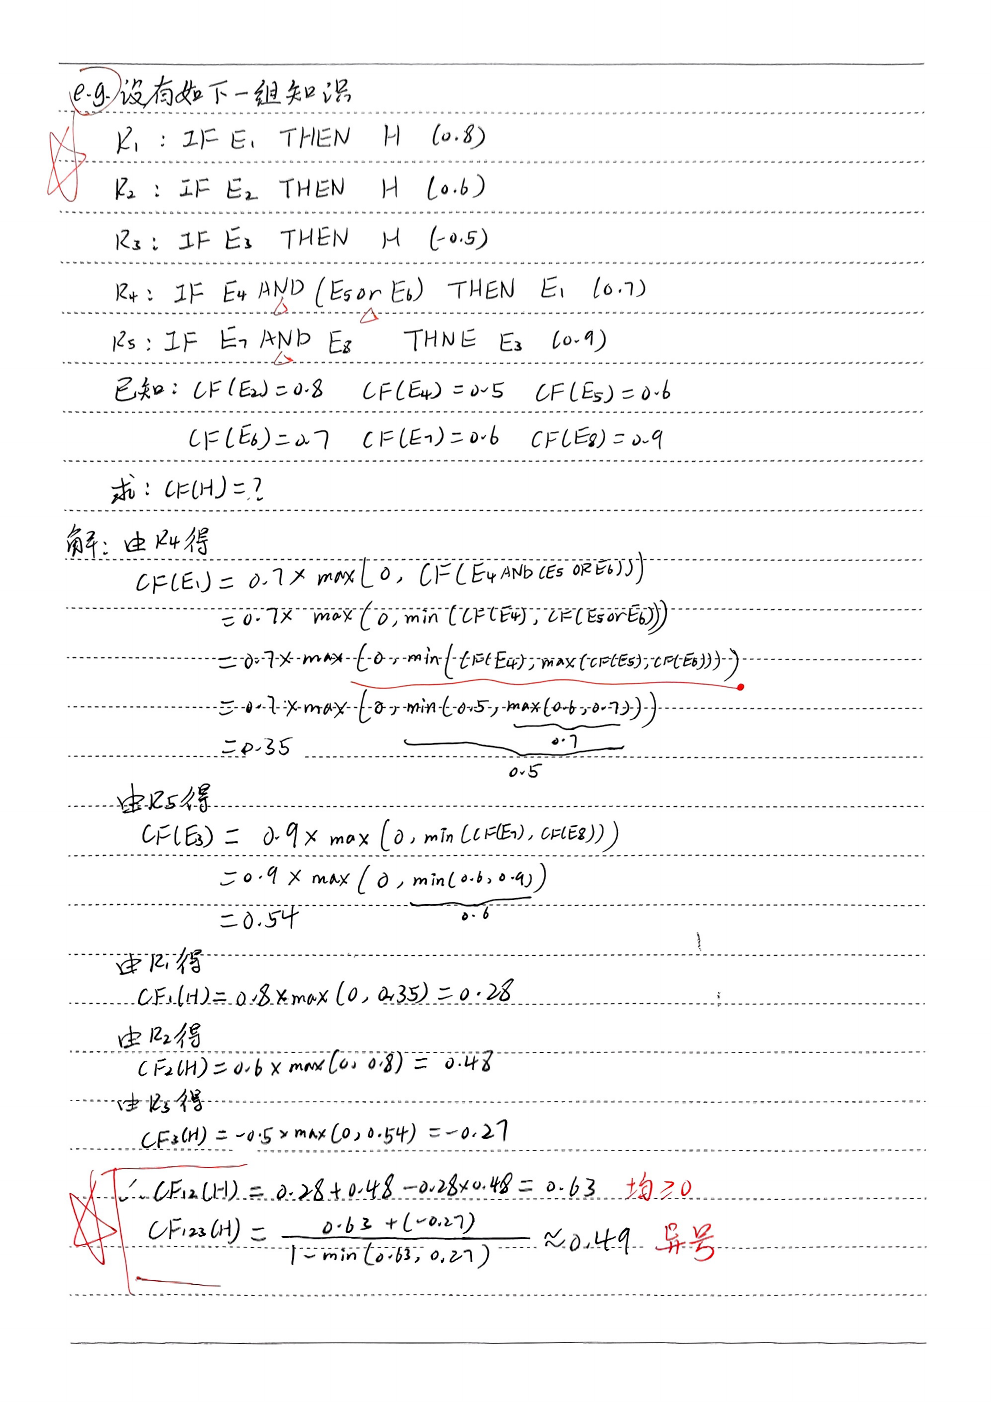 e.g. 设有如下一组知识
R₁ : IF E₁ THEN H (0.8)
R₂ : IF E₂ THEN H (0.6)
R₃ : IF E₃ THEN H (-0.5)
R₄ : IF E₄ AND (E₅ or E₆) THEN E₁ (0.7)
R₅ : IF E₇ AND E₈ THNE E₃ (0.9)
已知: CF(E₂)=0.8 CF(E₄)=0.5 CF(E₅)=0.6
CF(E₆)=0.7 CF(E₇)=0.6 CF(E₈)=0.9
求: CF(H)=?
解: 由R₄得
CF(E₁) = 0.7 × max(0, CF(E₄ AND (E₅ OR E₆)))
= 0.7 × max(0, min(CF(E₄), CF(E₅ or E₆)))
= 0.7 × max(0, min(CF(E₄), max(CF(E₅), CF(E₆))))
= 0.7 × max(0, min(0.5, max(0.6, 0.7)))
0.7
= 0.35
0.5
由R₅得
CF(E₃) = 0.9 × max(0, min(CF(E₇), CF(E₈)))
= 0.9 × max(0, min(0.6, 0.9))
0.6
= 0.54
由R₁得
CF₁(H) = 0.8 × max(0, 0.35) = 0.28
由R₂得
CF₂(H) = 0.6 × max(0, 0.8) = 0.48
由R₃得
CF₃(H) = -0.5 × max(0, 0.54) = -0.27
∴ CF₁₂(H) = 0.28 + 0.48 - 0.28×0.48 = 0.63 均≥0
CF₁₂₃(H) = (0.63 + (-0.27)) / (1 - min(0.63, 0.27)) ≈ 0.49 异号